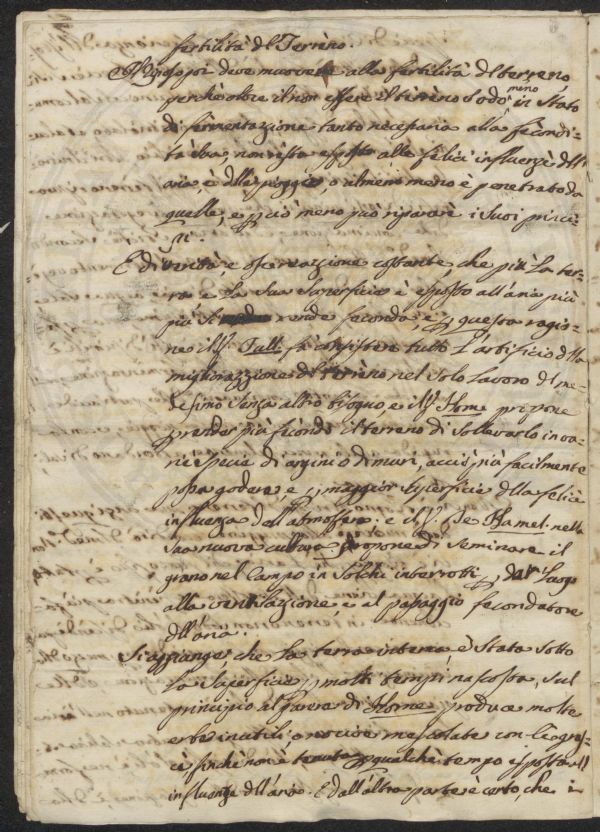 fertilità del Terreno.
poi deve nuocere alla fertilità del terreno
perchè oltre il non essere il terreno sodo meno in stato
di fermentazione tanto necessaria alla fecondi-
tà sua, non resta esposto alle felici influenze dell'
aria e delle piogge, o almeno meno è penetrato da
quelle, e p. ciò meno può riparare i suoi princi-
pi.
E di verità e osservazione costante, che più la ter-
ra e la sua superficie è esposta all'aria più
più si rende feconda, e p. questa ragio-
ne il Sr. Tull fa consistere tutto l'artificio della
migliorazione del terreno nel solo lavoro del me-
desimo senza altro bisogno, e il Sr. Home propone
p. render più fecondo il terreno di sollevarlo in va-
rie specie di argini o di muri, acciò più facilmente
possa godere, e p. maggior superficie della felice
influenza dell'atmosfera. e il Sr. De Hamel nella
sua nuova cultura propone di seminare il
grano nel Campo in solchi interrotti p. dar luogo
alla ventilazione e al passaggio fecondatore
dell'aria.
Si aggiunge, che la terra interna, e stata sotto
la superficie p. molti tempi nascosta, sul
principio al parere di Home produce molte
erbe inutili o nocive mescolate con
finchè non è tenuta p. qualche tempo esposta all'
influenze dell'aria. E dall'altra parte è certo, che i